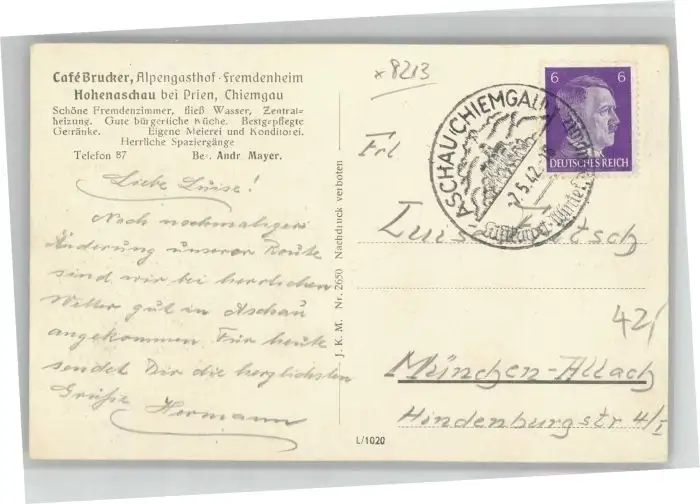 Café Brucker, Alpengasthof-Fremdenheim
Hohenaschau bei Prien, Chiemgau
Schöne Fremdenzimmer, fließ Wasser, Zentral=
heizung. Gute bürgerliche Küche. Bestgepflegte
Getränke. Eigene Meierei und Konditorei.
Herrliche Spaziergänge
Telefon 87 Bes. Andr Mayer.
Liebe Luise!
Nach nochmaliger
Änderung unserer Route
sind wir bei herrlichen
Wetter gut in Aschau
angekommen. Für heute
sendet Dir die herzlichsten
Grüße Hermann
J. K. M. Nr. 2650 Nachdruck verboten
L/1020
x 8213
6 6
DEUTSCHES REICH
ASCHAU (CHIEMGAU)
-7.5.42.-18
Luftkurort
Frl
Luise
42,
München-Allach
Hindenburgstr 4/I